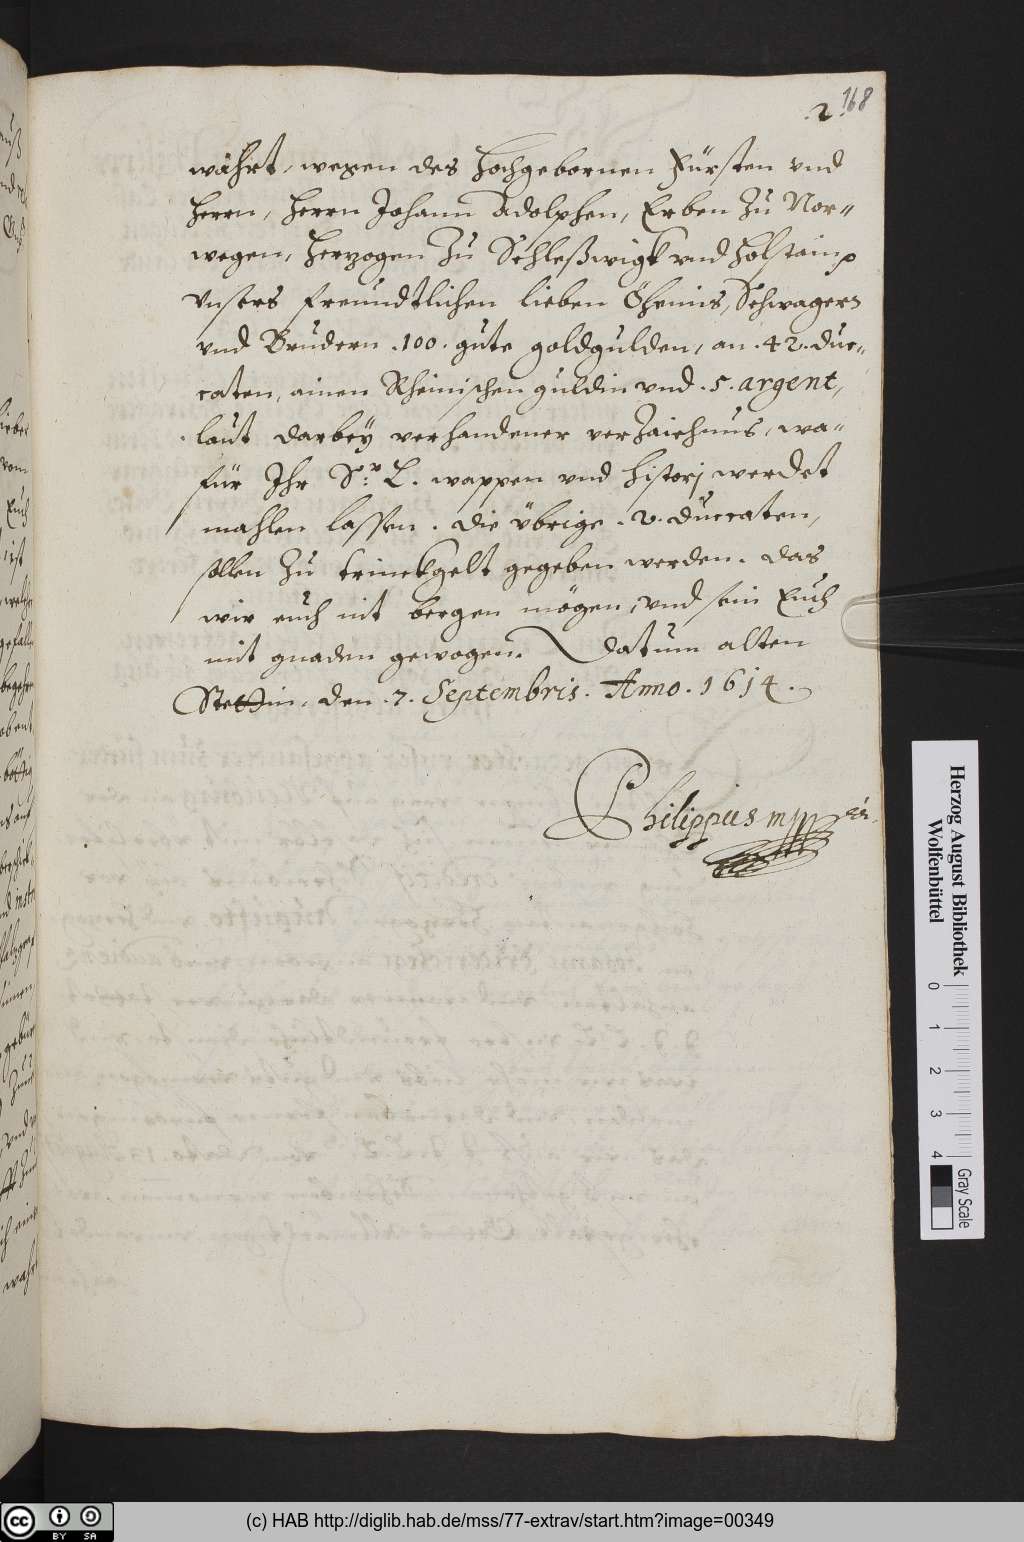 168
.2.
währt, wegen des Hochgebornen Fürsten vnd
Herrn, Herrn Johann Adolphen, Erben zu Nor„
wegen, Herzogen zu Schleßwigk vnd Holstain,
Vnsers freundtlichen lieben Öheims, Schwagers
vnd Brudern .100. gute goldgulden, an .42. duc„
caten, ainen Rheinischen guldin vnd .5. argent,
laut darbeÿ verhandener verzaichnus, wa„
für Ihr Sr: L. wappen vnd historj werdet
mahlen lassen. die übrige .2. duccaten,
sollen zu trinckgelt gegeben werden. das
wir euch nit bergen mögen, vnd sein Euch
mit gnaden gewogen. Datum alten
Stettin, den .7. Septembris. Anno. 1614.
Philippus mp
Herzog August Bibliothek
Wolfenbüttel
0 1 2 3 4
Gray Scale
(c) HAB http://diglib.hab.de/mss/77-extrav/start.htm?image=00349
cc BY SA